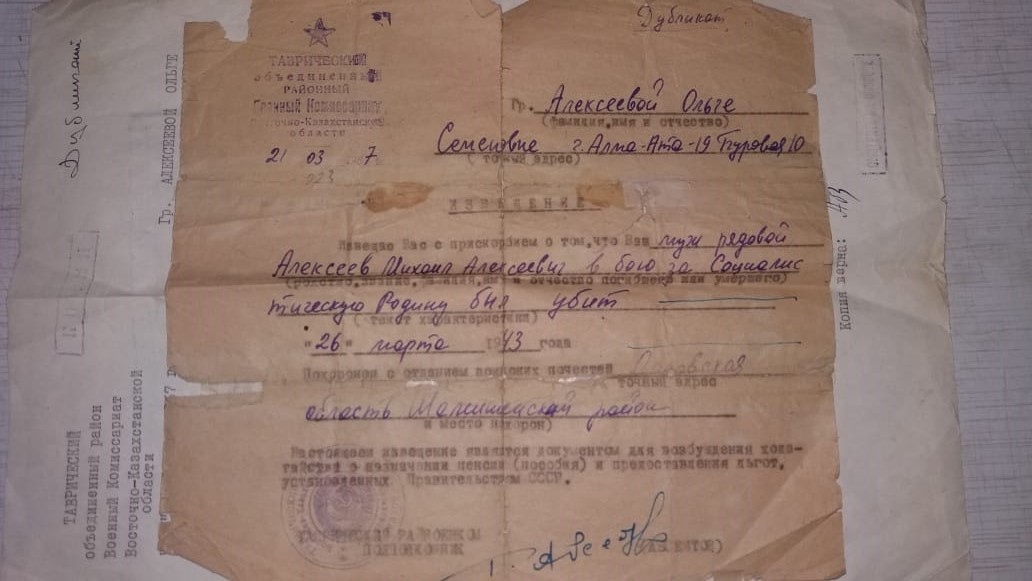 Дубликат
ТАВРИЧЕСКИЙ
объединенный
РАЙОННЫЙ
Военный Комиссариат
Восточно-Казахстанской
области
21 03 7
223
Гр. Алексеевой Ольге
(фамилия, имя и отчество)
Семеновне г. Алма-Ата-19 10
(точный адрес)
ИЗВЕЩЕНИЕ
Извещаю Вас с прискорбием о том, что Ваш муж рядовой
Алексеев Михаил Алексеевич в бою за Социалис
(родство, звание, фамилия, имя и отчество погибшего или умершего)
тическую Родину был убит
(текст характеристики)
"26" марта 1943 года
Похоронен с отданием воинских почестей
точный адрес
область район
и место похорон)
Настоящее извещение является документом для возбуждения хода-
тайства о назначении пенсии (пособия) и предоставления льгот,
установленных Правительством СССР.
ПОЛКОВНИК
Дубликат
Гр. АЛЕКСЕЕВОЙ ОЛЬГЕ
ТАВРИЧЕСКИЙ
объединенный район
Военный Комиссариат
Восточно-Казахстанской
области
Копия верна: